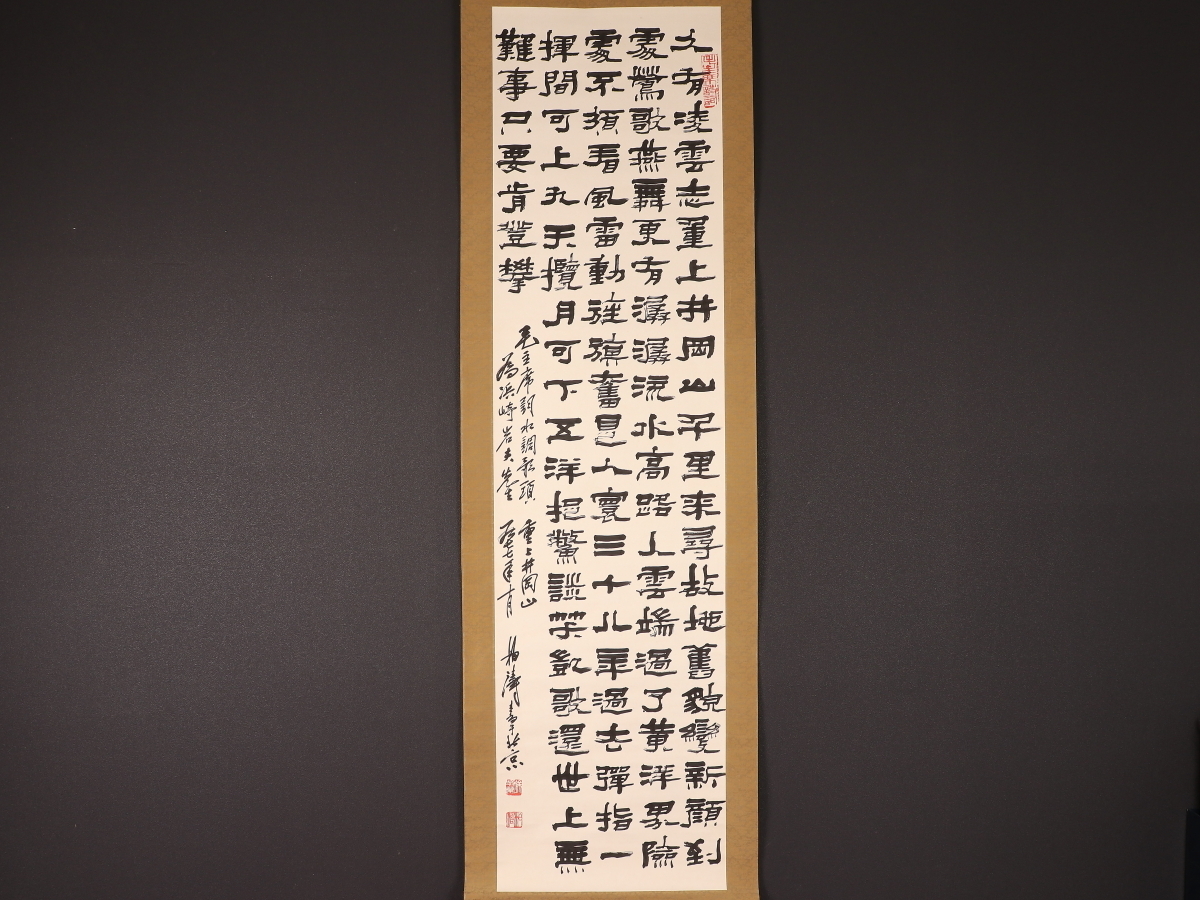 久有凌雲志重上井岡山千里来尋故地舊貌變新顔到
處鶯歌燕舞更有潺潺流水高路入雲端過了黄洋界險
處不須看風雷動旌旗奮是人寰三十八年過去彈指一
揮間可上九天攬月可下五洋捉鱉談笑凱歌還世上無
難事只要肯登攀
毛主席詞水調歌頭 重上井岡山
為浜崎岩夫先生 一九七七年十月 書于北京